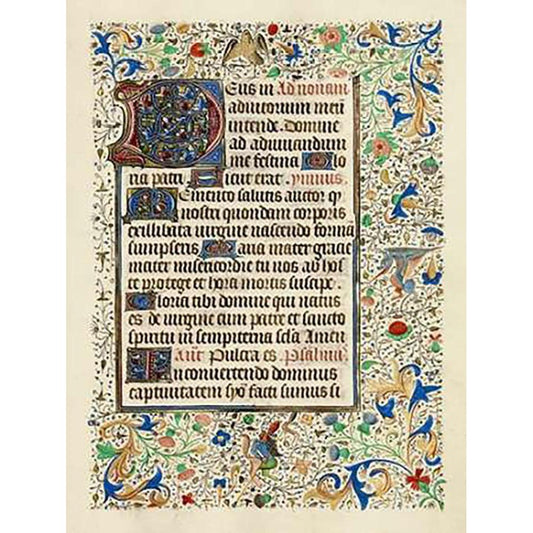 Deus in Ad nonam
adiutorium meū
intende. Domine
ad adiuvandum
me festina Glo
ria patri Sicut erat. ymnus.
Memento salutis auctor q
nostri quondam corporis
ex illibata virgine nascendo formā
sumpseris Maria mater gracie
mater misericordie tu nos ab hos
te protege et hora mortis suscipe.
Gloria tibi domine qui natus
es de virgine cum patre et sancto
spiritu in sempiterna secla Amen
ant Pulcra es Psalmus
In convertendo dominus
captivitatem syō facti sumus si